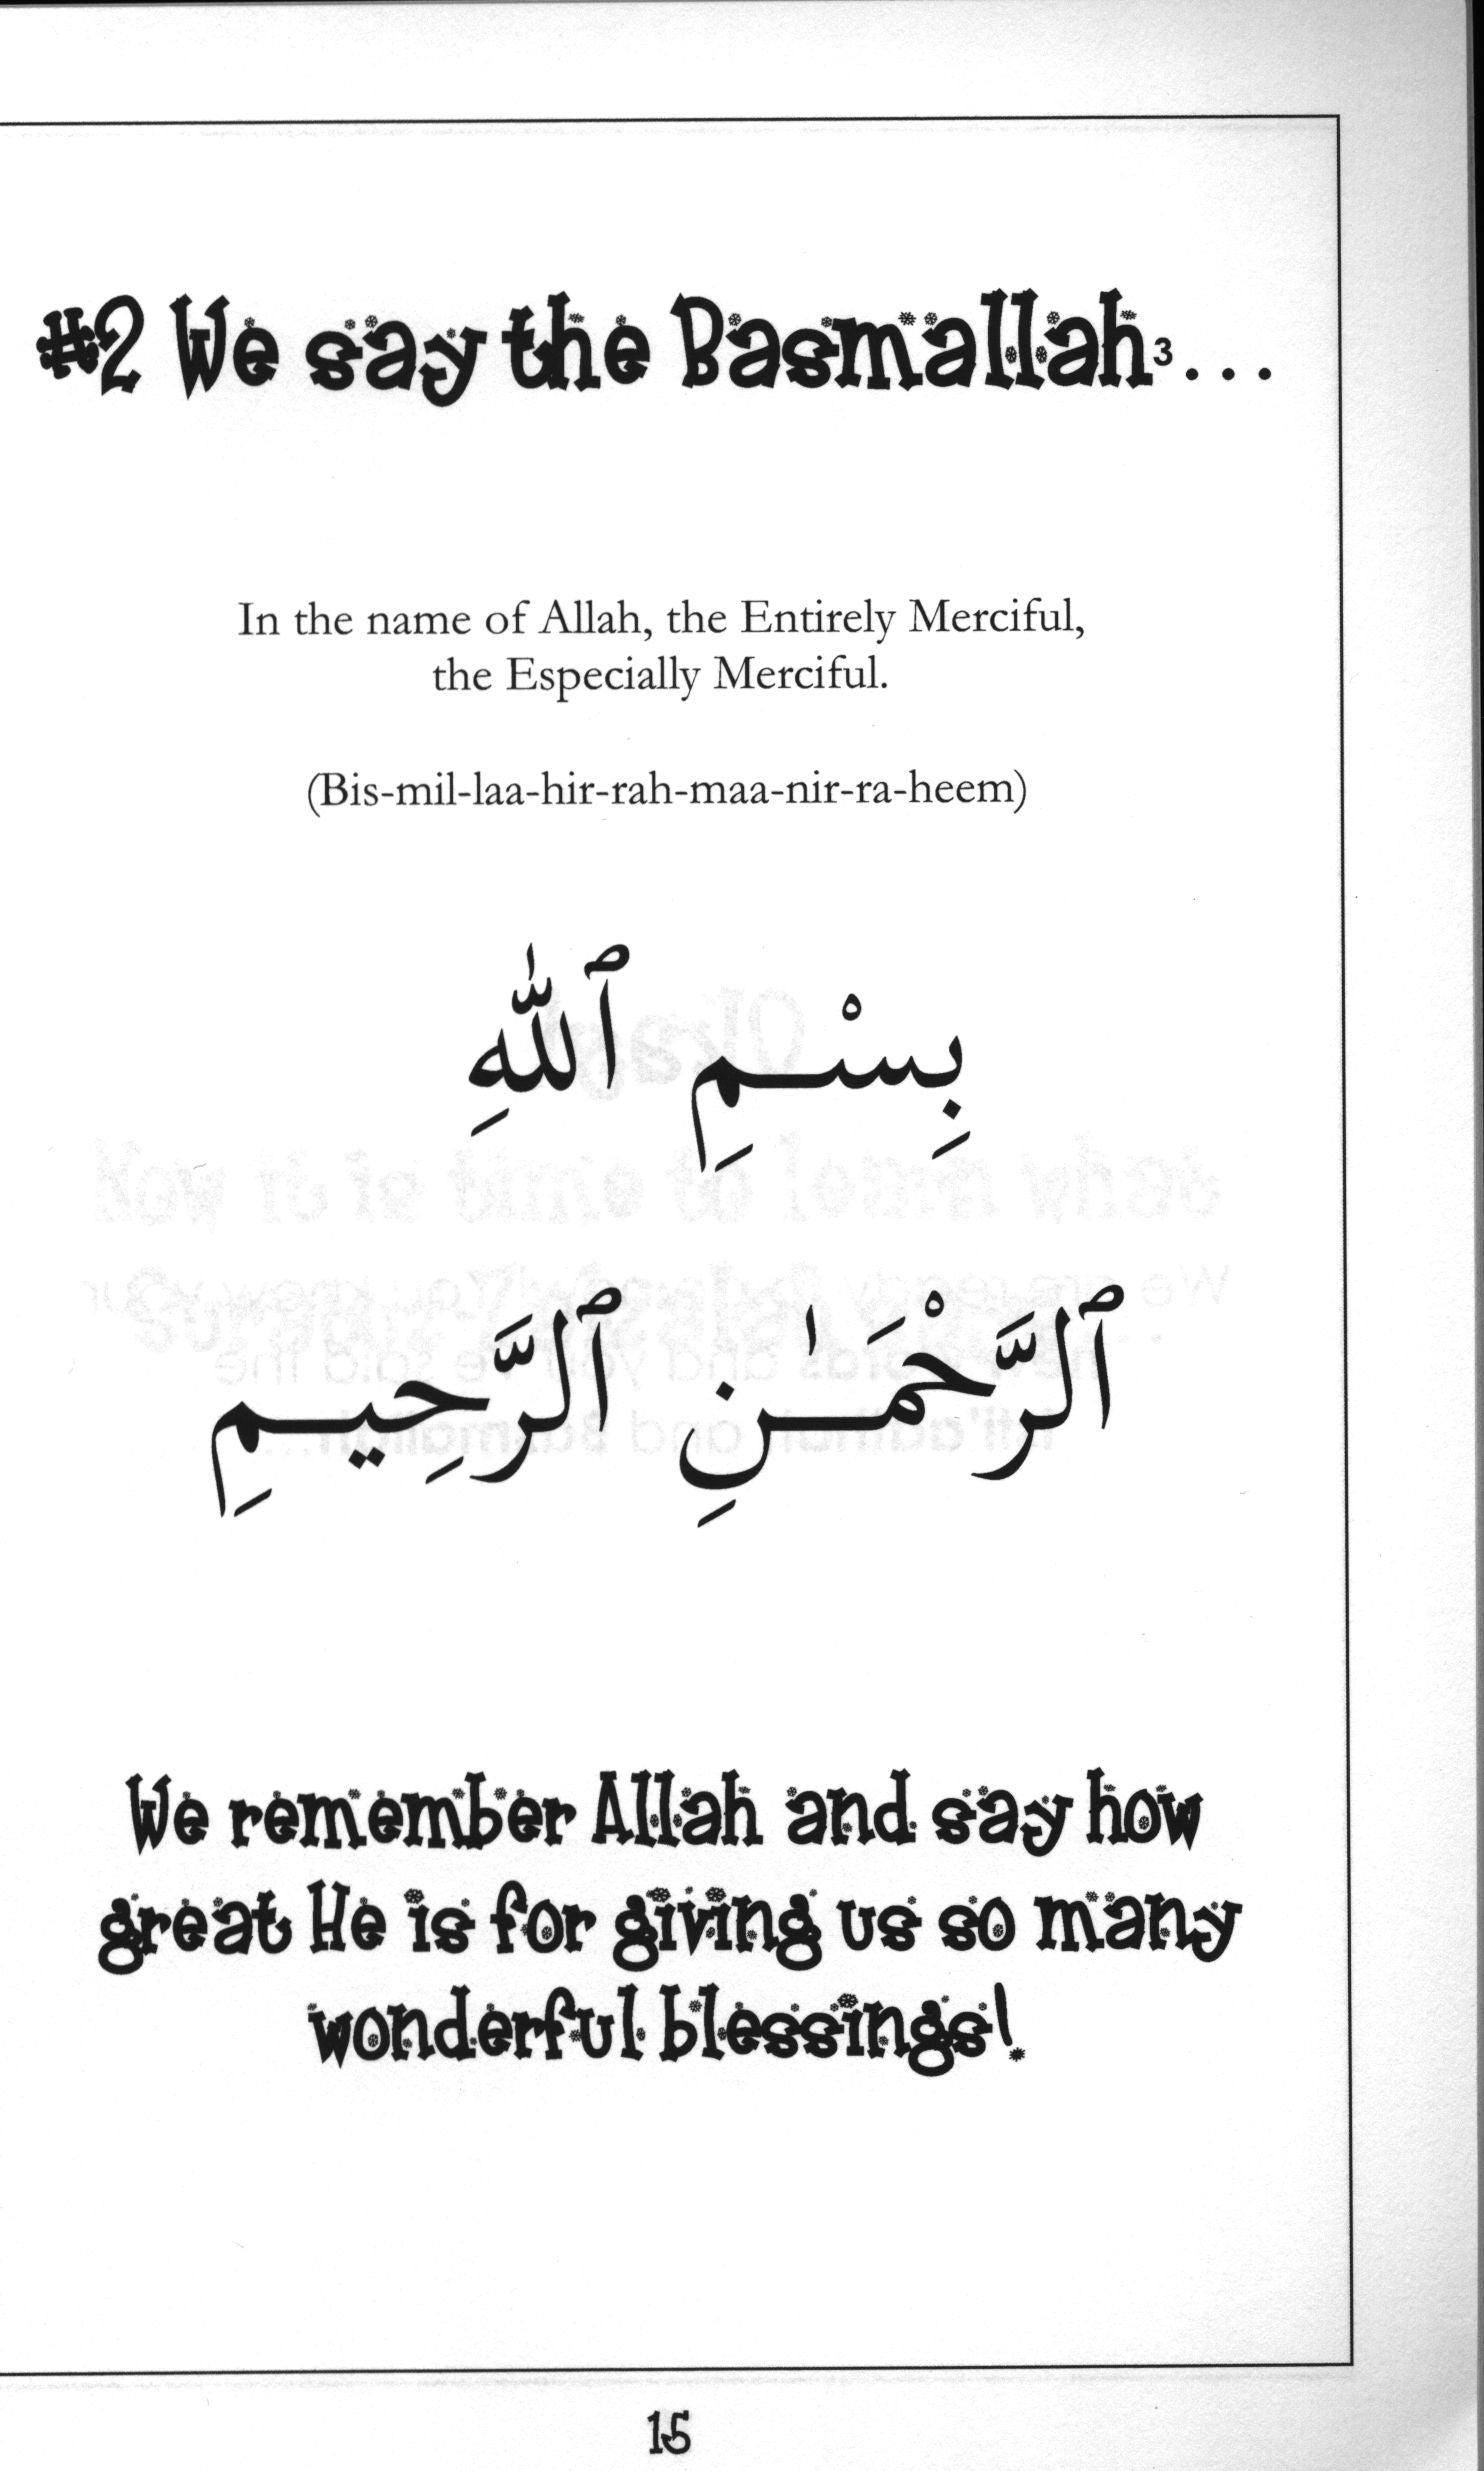 #2 We say the Basmallah³...
In the name of Allah, the Entirely Merciful,
the Especially Merciful.
(Bis-mil-laa-hir-rah-maa-nir-ra-heem)
بِسْمِ ٱللَّٰهِ
ٱلرَّحْمَـٰنِ ٱلرَّحِيمِ
We remember Allah and say how
great He is for giving us so many
wonderful blessings!
15